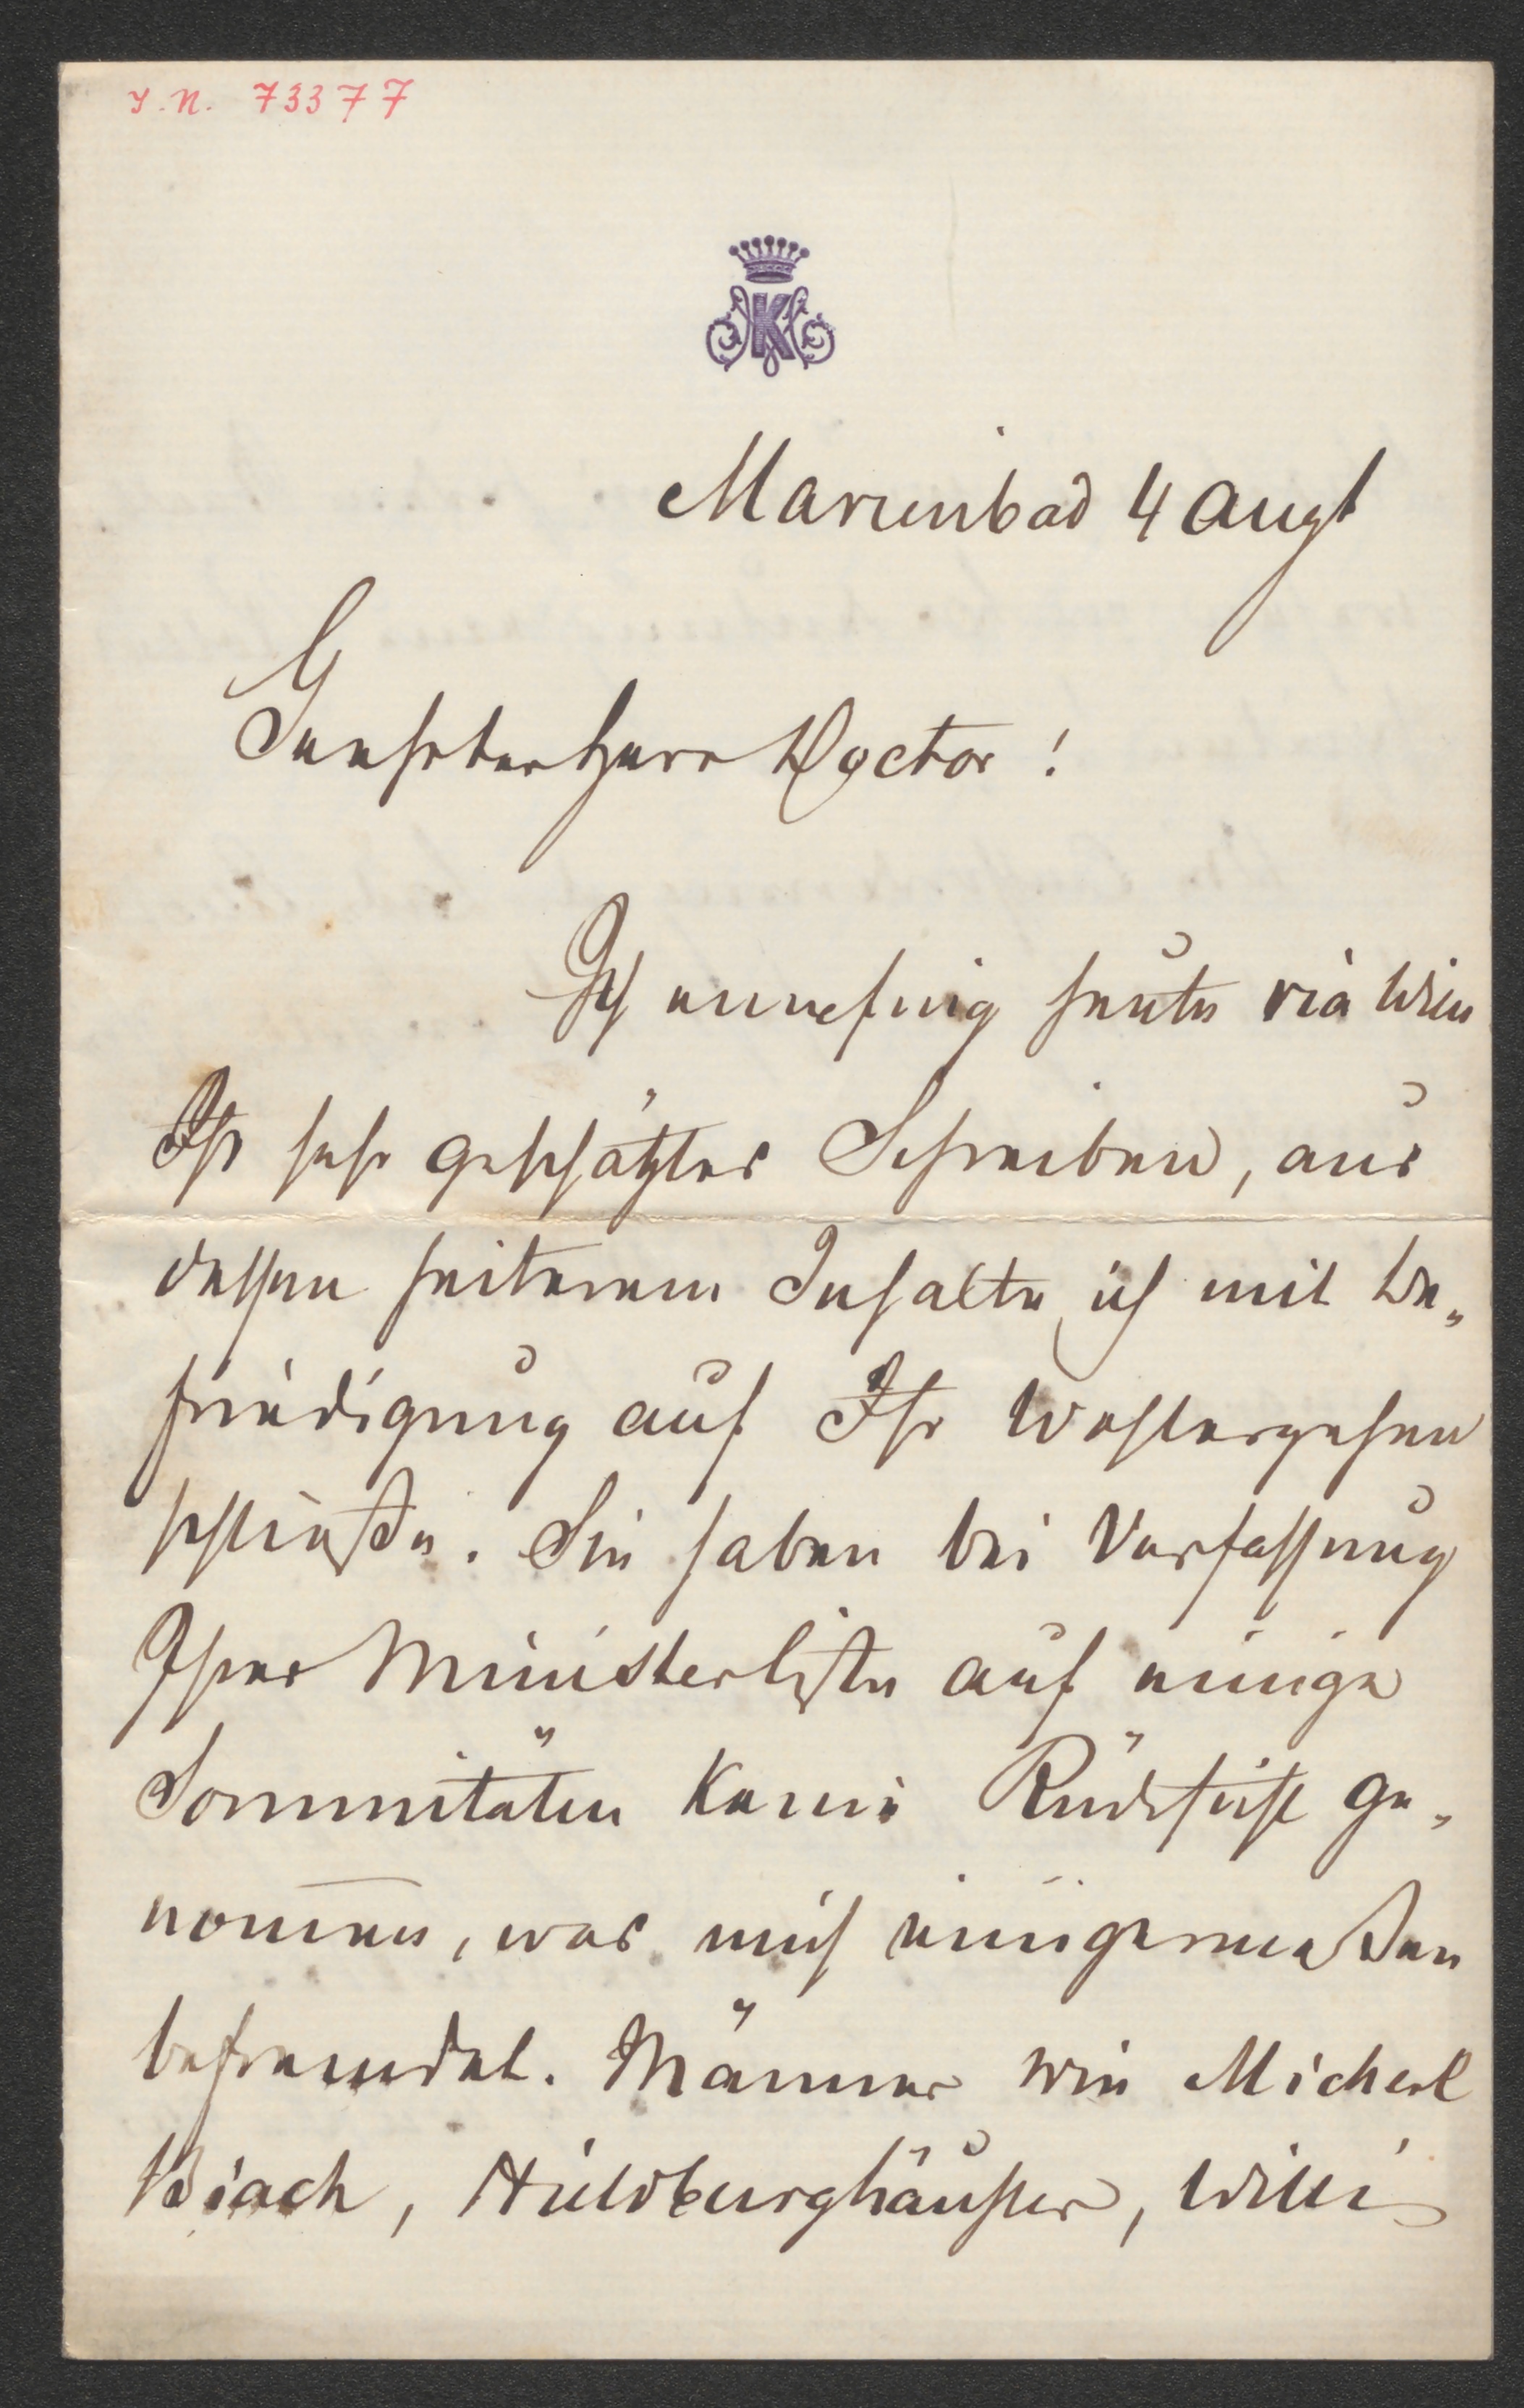 I.N. 73377
K
Marienbad 4 Augt
Geehrter Herr Doctor!
Ich empfing heute via Wien
Ihr sehr geschätztes Schreiben, aus
dessen heiterem Inhalte ich mit Be„
friedigung auf Ihr Wohlergehen
schließe. Sie haben bei Verfassung
Ihrer Ministerliste auf einige
Sommitäten keine Rücksicht ge„
nom̅en, was mich einigermaßen
befremdet. Männer wie Michael
Biach, Hildburghäuser, Willi